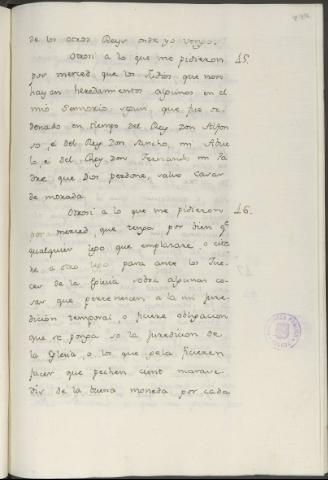 de los otros Reys onde yo vengo.
Otrosi a lo que me pidieron 15.
por merced que los Judios que non
hayan heredamientos algunos en el
mio Sennorio segun, que fue or
denado en tiempo del Rey Don Alfon
so, e del Rey Don Sancho, mi Abue
lo, e del Rey Don Fernando mi Pa
dre que Dios perdone, salvo casas
de morada
Otrosi a lo que me pidieron 16.
por merced, que tenga por bien q.e
qualquier lego que emplazare, o cita
re a otro lego para ante los Jue
ces de la Iglesia sobre algunas co
sas que pertenecen a la mi jure
dición temporal, o ficiere obligacion
que se ponga so la juredicion de
la Iglesia, o los que gela ficieren
facer que pechen cient marave
dis de la buena moneda por cada